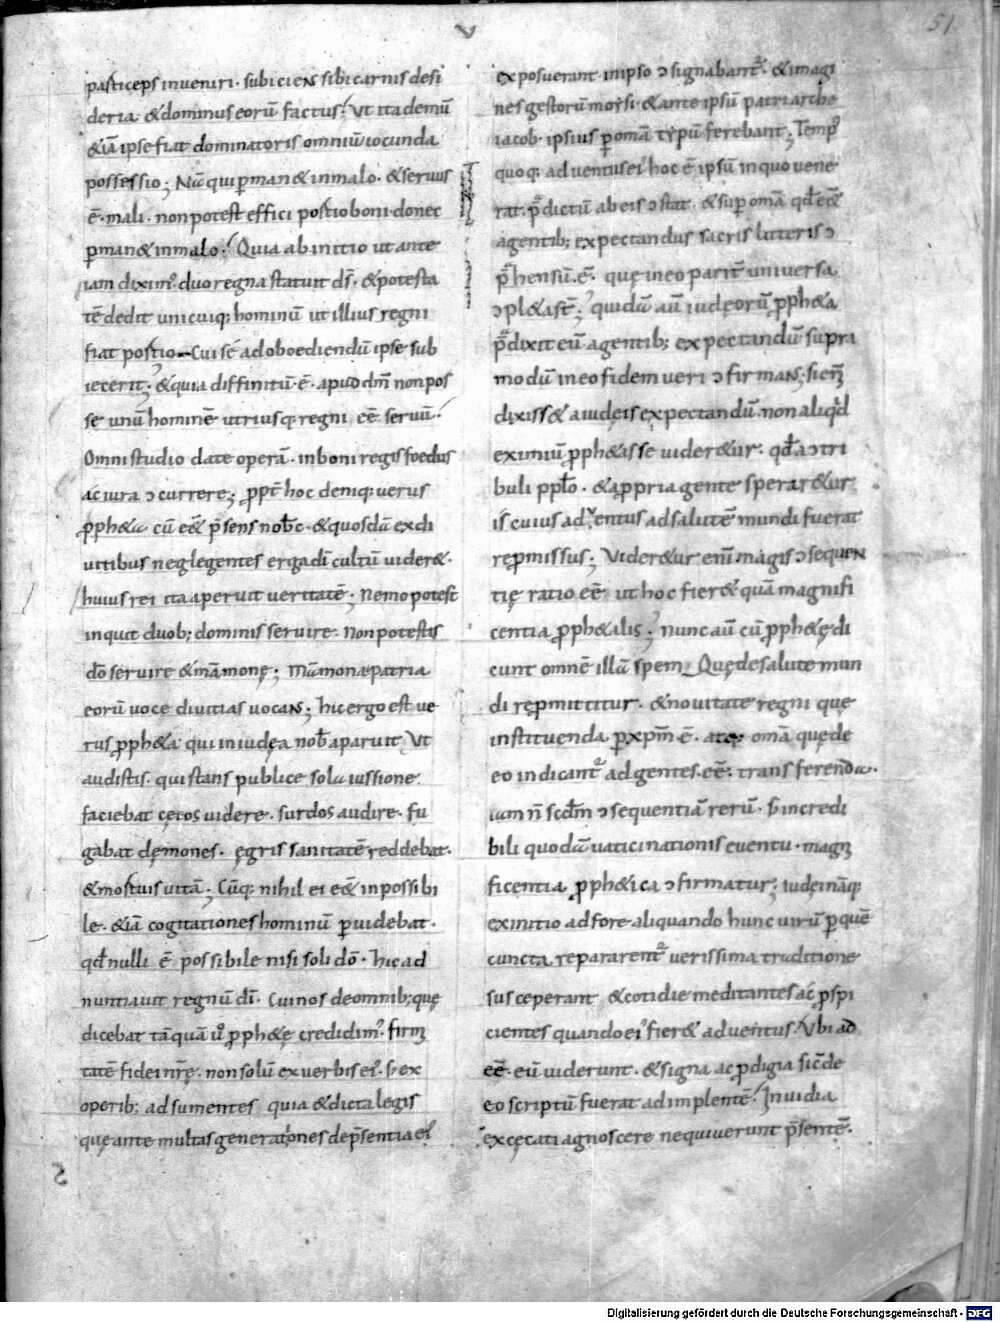 V
51
particeps inueniri. subicieNs sibi carnis desi
deria. &dominus eorū factus. Vt ita demū
&iā ipse fiat dominatoris omniū iocunda
possessio; Nā qui ꝑman& in malo. & seruus
ē. mali. non potest effici portio boni donec
ꝑman& in malo. Quia ab initio ut ante
iam diximꝰ. duo regna statuit dſ̄. &potesta
tē dedit unicuiq; hominū ut illius regni
fiat portio. Cui se ad oboediendū ipse sub
iecerit. &quia diffinitū. ē. apud dm̄ non pos
se unū hominē utriusq. regni. eē seruū.
Omni studio date operā. in boni regis foedus
ac iura ↄcurrere; ꝓpt̄ hoc deniq: uerus
ꝓph&a cū eēt p̄sens nobc. &quosdā ex di
uitibus neglegentes erga dī cultū uider&.
huius rei ita aperuit ueritatē. Nemo potest
inquit duob; dominis seruire. Non potestis
dō seruire &māmonę; Māmona patria
eorū uoce diuitias uocaN; hic ergo est ue
rus ꝓph&a qui in iudęa nob aparuit. Vt
audistis. qui stans publice sola iussione
faciebat cęcos uidere. surdos audire. fu
gabat dęmones. ęgris sanitatē reddebat.
&mortuis uitā; Cūq; nihil ei eēt inpossibi
le. &iā cogitationes hominū ꝑuidebat.
qd nulli ē possibile nisi soli dō. hic ad
nuntiauit regnū dī. Cui nos de omnib; quę
dicebat tāquā uꝰ ꝓph&ę credidimꝰ. firm
tatē fidei nr̄ę. non solū ex uerbis eiꝰ. s; ex
operib; adsumentes quia &dicta legis
quę ante multas generationes de p̄sentia eiꝰ
exposuerant in ipso ↄsignabant᷑. &imagi
nes gestorū morsi. &ante ipsū patriarche
iacob. ipsius ꝑ omā typū ferebant; Tempꝰ
quoq: aduentus ei hoc ē ipsū in quo uene
rat. p̄dictū ab eis ↄstat. &sup omā qd eēt
agentib; expectandus sacris litteris ↄ
p̄hensū. ē. quę in eo parit᷑ uniuersa
ↄpl&a st̄; quidā aū iudęorū ꝓph&a
p̄dixit eū agentib; expectandū supra
modū in eo fidem ueri ↄfirmaNs; si enī
dixiss& a iudęis expectandū. non aliqd
eximiū ꝓph&isse uider&ur. qd a ↄtri
buli pplo. &a ꝓpria gente sperar&ur
is cuius aduentus ad salutē mundi fuerat
reꝓmissus; Vider&ur enī magis ↄsequeN
tię ratio eē. ut hoc fier& quā magnifi
centia ꝓph&alis; nunc aū cū ꝓph&ę di
cunt omnē illā spem. Quę de salute mun
di reꝓmittitur. &nouitate regni que
instituenda ꝑ xpm̄ ē. atq; omā quę de
eo indicant᷑ ad gentes. eē. transferenda.
iam n̄ scdm̄ ↄsequentiā rerū. s; incredi
bili quodā uaticinationis euentu. magn
ficentia ꝓph&ica ↄfirmatur; iudei nāq;
ex initio ad fore aliquando hunc uirū ꝑ quē
cuncta repararent᷑ uerissima traditione
susceperant &cotidie meditantes ac ꝓspi
cientes quando eiꝰ fier& aduentus. Vbi ad
eē. eū uiderunt. &signa ac ꝓdigia sic de
eo scriptū fuerat adimplentē. Inuidia
excęcati agnoscere nequiuerunt p̄sentē.
Digitalisierung gefördert durch die Deutsche Forschungsgemeinschaft - DFG